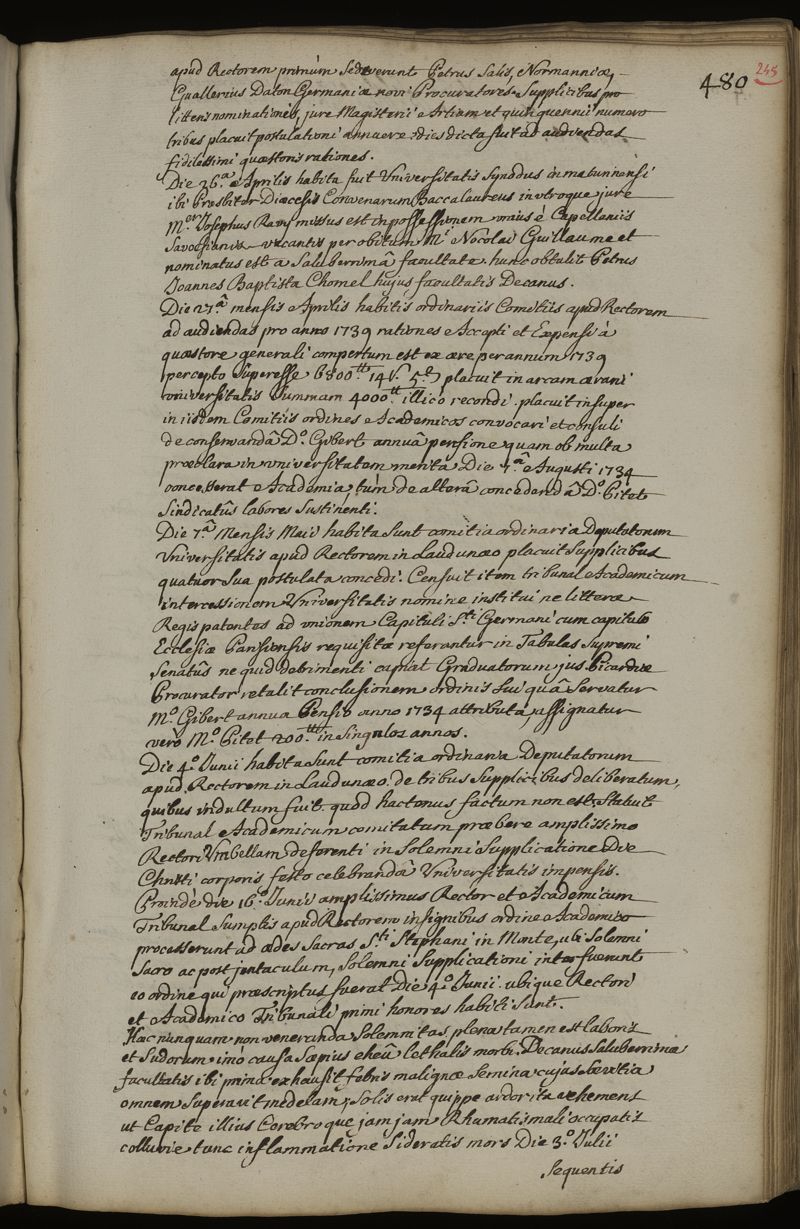 480
245
apud Rectorem primùm Sederunt Petrus Salis, Normanniæ,
Guallerius Daton Germaniæ novi Procuratores. Supplicibus pro
litteris nominationis, jure Magisterii Artium et quinquennii numero
tribus placuit postulationi annuere. dies dicta fuit ad audiendas
fidelissimi quæstoris rationes.
Die 26.a Aprilis habita fuit Universitatis Synodus in maturinensi
ibi Presbiter Diœcesis Convenarum Baccalaureus in utroque jure
M.er Josephus Ram missus est in possessionem unius è Capellaniis
Savoisianis vacantis per obitum M.i Nicolai Guillaume et
nominatus est a Saluberrimâ facultate. hunc obtulit Petrus
Joannes Baptista Chomel hujus facultatis Decanus.
Die 27.â mensis Aprilis habitis ordinariis Comitiis apud Rectorem
ad audiendas pro anno 1739 rationes Accepti et Expensi à
quæstore generali compertum est ex ære per annum 1739
percepto Superesse 6800.tt 14.s 5.d placuit in arcam ærarii
universitatis Summam 4000.tt illico recondi. placuit insuper
in iisdem Comitiis ordines Academicos convocari et consuli
de conservandâ D.o Gibert annuâ pensione quam ob multa
præclara in universitatem merita Die 7.â Augusti 1734
concesserat Academia, tùm de alterâ concedendâ D.o Pitet
Sindicatûs labores Sustinenti.
Die 7.â Mensis Maii habita Sunt comitia ordinaria Deputatorum
Universitatis apud Rectorem in Laudunæo placuit Supplicibus
quatuor Sua postulata concedi. Censuit item tribunal Academicum
intercessionem Universitatis nomine institui ne litteræ
Regis patentes ad unionem Capituli S.ti Germani cum capitulo
Ecclesiæ Parisiensis requisitæ referantur in Tabulas Supremi
Senatûs ne quid detrimenti capiat Graduatorum jus. Picardiæ
Procurator retulit conclusionem ordinis Sui quâ Servatur
M.o Gibert annua Pensio anno 1734 attributa, assignatur
vero M.o Pitet 200.tt in Singulos annos.
Die 4.o Junii habita Sunt comitia ordinaria Deputatorum
apud Rectorem in Laudunæo. de tribus Supplicibus deliberatum,
quibus indultum fuit. quod hactenus factum non est, Statuit
Tribunal Academicum comitatum præbere amplissimo
Rectori Umbellam deferenti in Solemni Supplicatione Die
Christi corporis festo celebrandâ Universitatis impensis.
Proindè die 16.o Junii amplissimus Rector et Academicum
Tribunal Sumptis apud Rectorem insignibus ordine Academico
processerunt ad ædes Sacras S.ti Stephani in Monte, ubi Solemni
Sacro ac post jentaculum, Solemni Supplicationi interfuerunt
eo ordine qui præscriptus fuerat Die 4.o Junii. ubique Rectori
et Academico Tribunali primi honores habiti Sunt.
Hæc nunquam non veneranda Solemnitas, plena tamen est laboris
et Sudorum imò causa Sæpius eheû lethalis morbi. Decanus Saluberrimæ
facultatis ibi prima exhausit febris malignæ Semina cujus Sævitia
omnem Superavit medelam, Solis erat quippe ardor ita vehemens
ut Capite illius Cerebroque jamjam Rhumatismali occupatis
colluvie tunc inflammatione Sideratis mors Die 3.o Julii
Sequentis